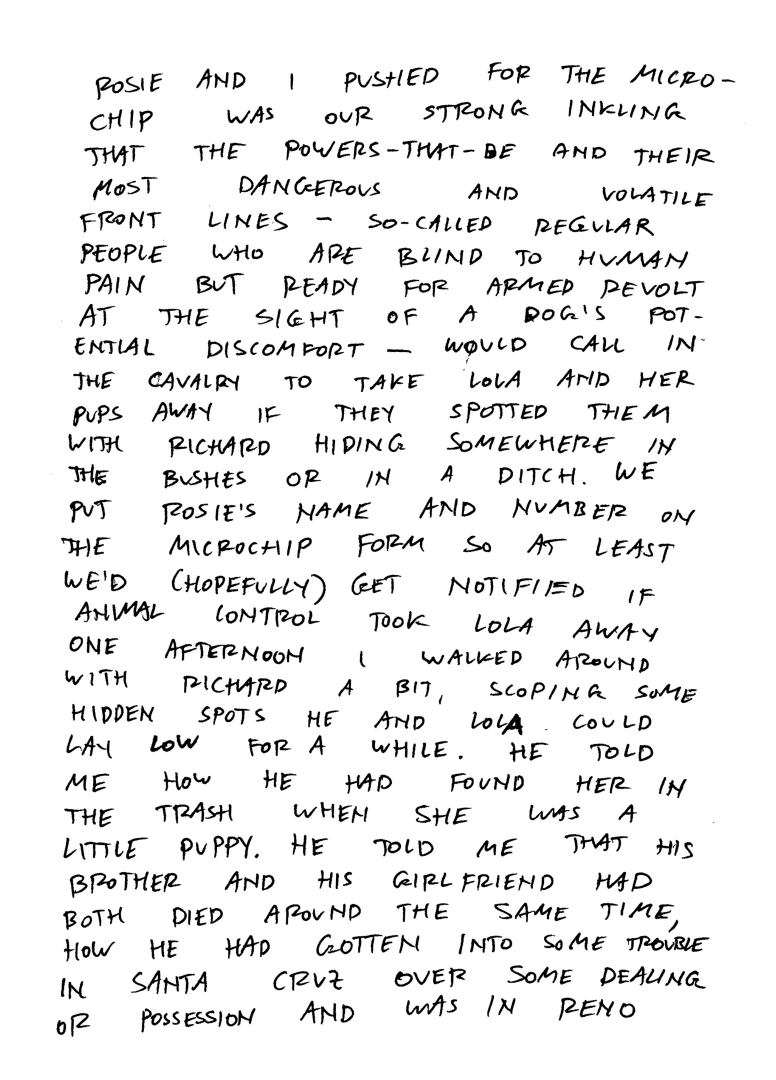 ROSIE AND I PUSHED FOR THE MICRO-
CHIP WAS OUR STRONG INKLING
THAT THE POWERS-THAT-BE AND THEIR
MOST DANGEROUS AND VOLATILE
FRONT LINES – SO-CALLED REGULAR
PEOPLE WHO ARE BLIND TO HUMAN
PAIN BUT READY FOR ARMED REVOLT
AT THE SIGHT OF A DOG'S POT-
ENTIAL DISCOMFORT — WOULD CALL IN
THE CAVALRY TO TAKE LOLA AND HER
PUPS AWAY IF THEY SPOTTED THEM
WITH RICHARD HIDING SOMEWHERE IN
THE BUSHES OR IN A DITCH. WE
PUT ROSIE'S NAME AND NUMBER ON
THE MICROCHIP FORM SO AT LEAST
WE'D (HOPEFULLY) GET NOTIFIED IF
ANIMAL CONTROL TOOK LOLA AWAY
ONE AFTERNOON I WALKED AROUND
WITH RICHARD A BIT, SCOPING SOME
HIDDEN SPOTS HE AND LOLA COULD
LAY LOW FOR A WHILE. HE TOLD
ME HOW HE HAD FOUND HER IN
THE TRASH WHEN SHE WAS A
LITTLE PUPPY. HE TOLD ME THAT HIS
BROTHER AND HIS GIRLFRIEND HAD
BOTH DIED AROUND THE SAME TIME,
HOW HE HAD GOTTEN INTO SOME TROUBLE
IN SANTA CRUZ OVER SOME DEALING
OR POSSESSION AND WAS IN RENO